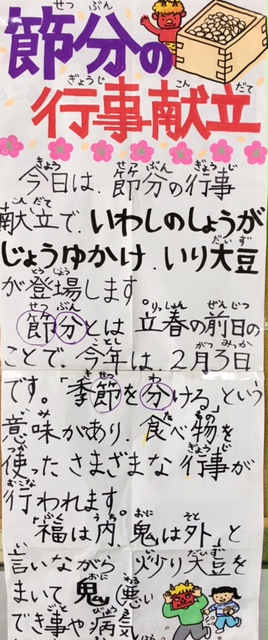 節分の
行事献立
今日は、節分の行事
献立で、いわしのしょうが
じょうゆかけ、いり大豆
が登場します
節分とは 立春の前日の
ことで、今年は、2月3日
です。「季節を分ける」という
意味があり、食べ物を
使ったさまざまな行事が
行われます。
「福は内、鬼は外」と
言いながら 炒り大豆を
まいて 鬼(悪い
でき事や病気